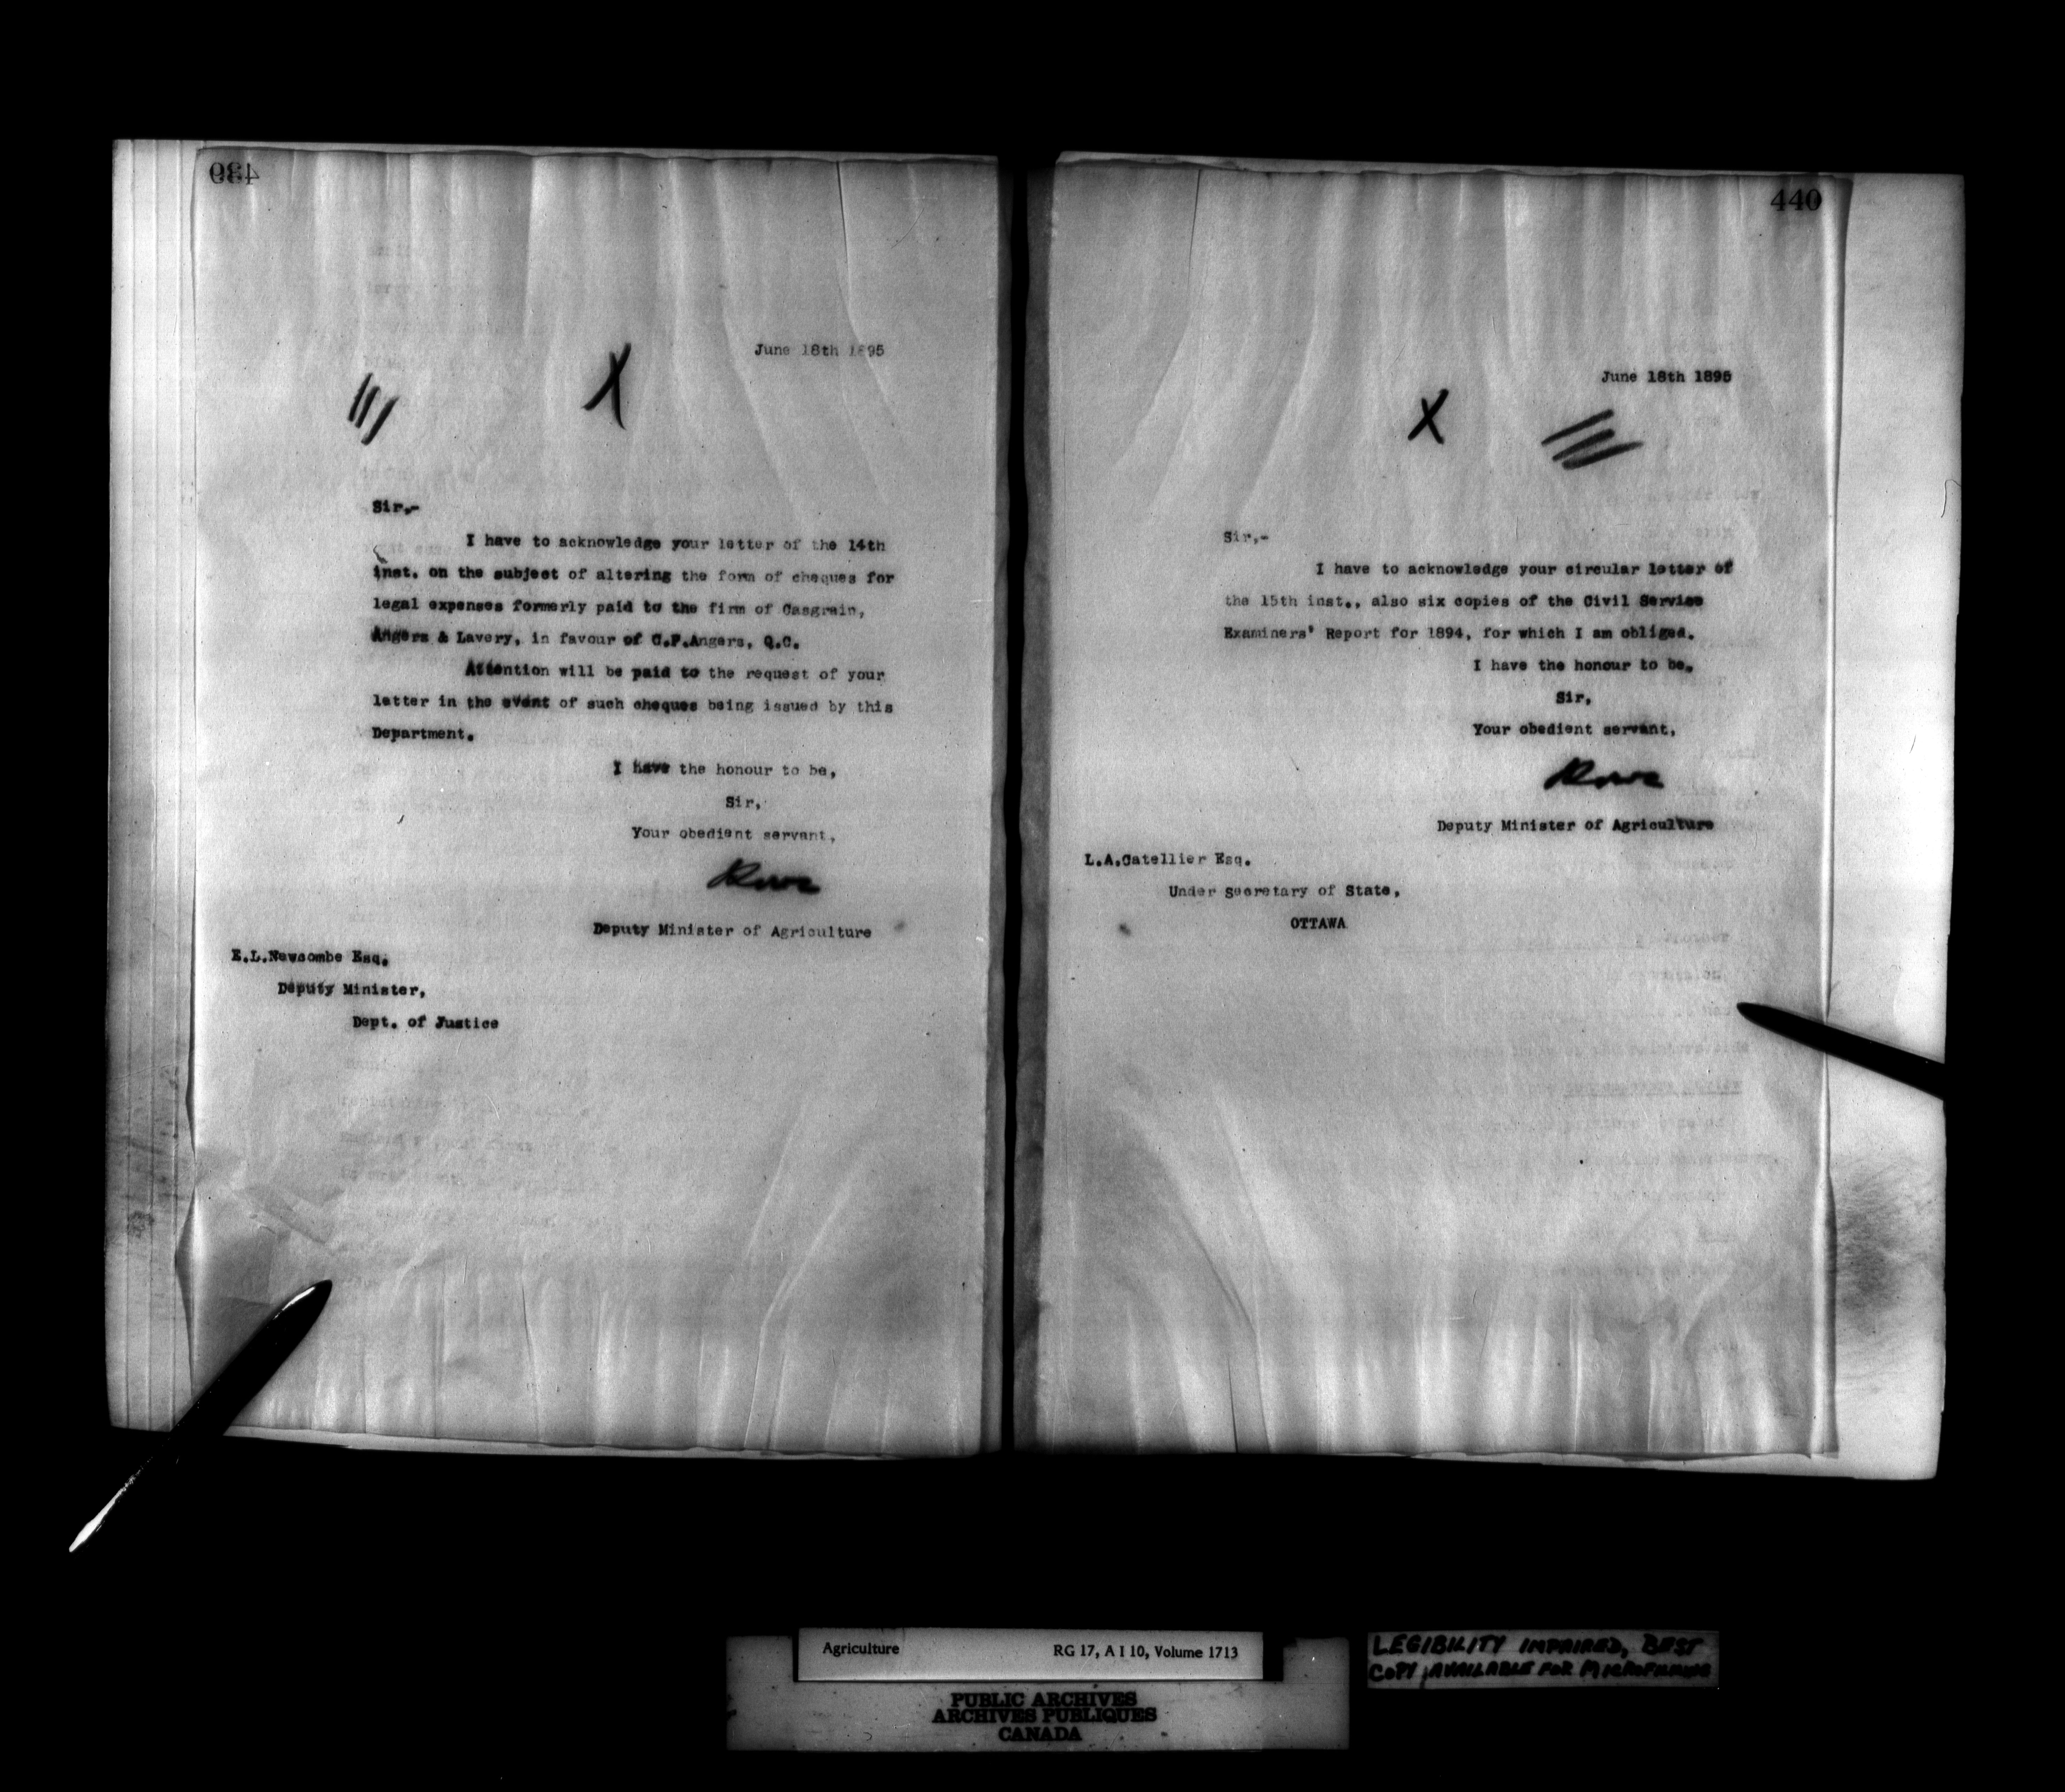 439
June 18th 1895
Sir,-
I have to acknowledge your letter of the 14th
inst. on the subject of altering the form of cheques for
legal expenses formerly paid to the firm of Casgrain,
Angers & Lavery, in favour of C.P.Angers, Q.C.
Attention will be paid to the request of your
letter in the event of such cheques being issued by this
Department.
I have the honour to be,
Sir,
Your obedient servant,
Deputy Minister of Agriculture
E.L.Newcombe Esq.
Deputy Minister,
Dept. of Justice
440
June 18th 1895
Sir,-
I have to acknowledge your circular letter of
the 15th inst., also six copies of the Civil Service
Examiners' Report for 1894, for which I am obliged.
I have the honour to be,
Sir,
Your obedient servant,
Deputy Minister of Agriculture
L.A.Catellier Esq.
Under Secretary of State,
OTTAWA
Agriculture RG 17, A I 10, Volume 1713
PUBLIC ARCHIVES
ARCHIVES PUBLIQUES
CANADA
LEGIBILITY IMPAIRED, BEST
COPY AVAILABLE FOR MICROFILMING